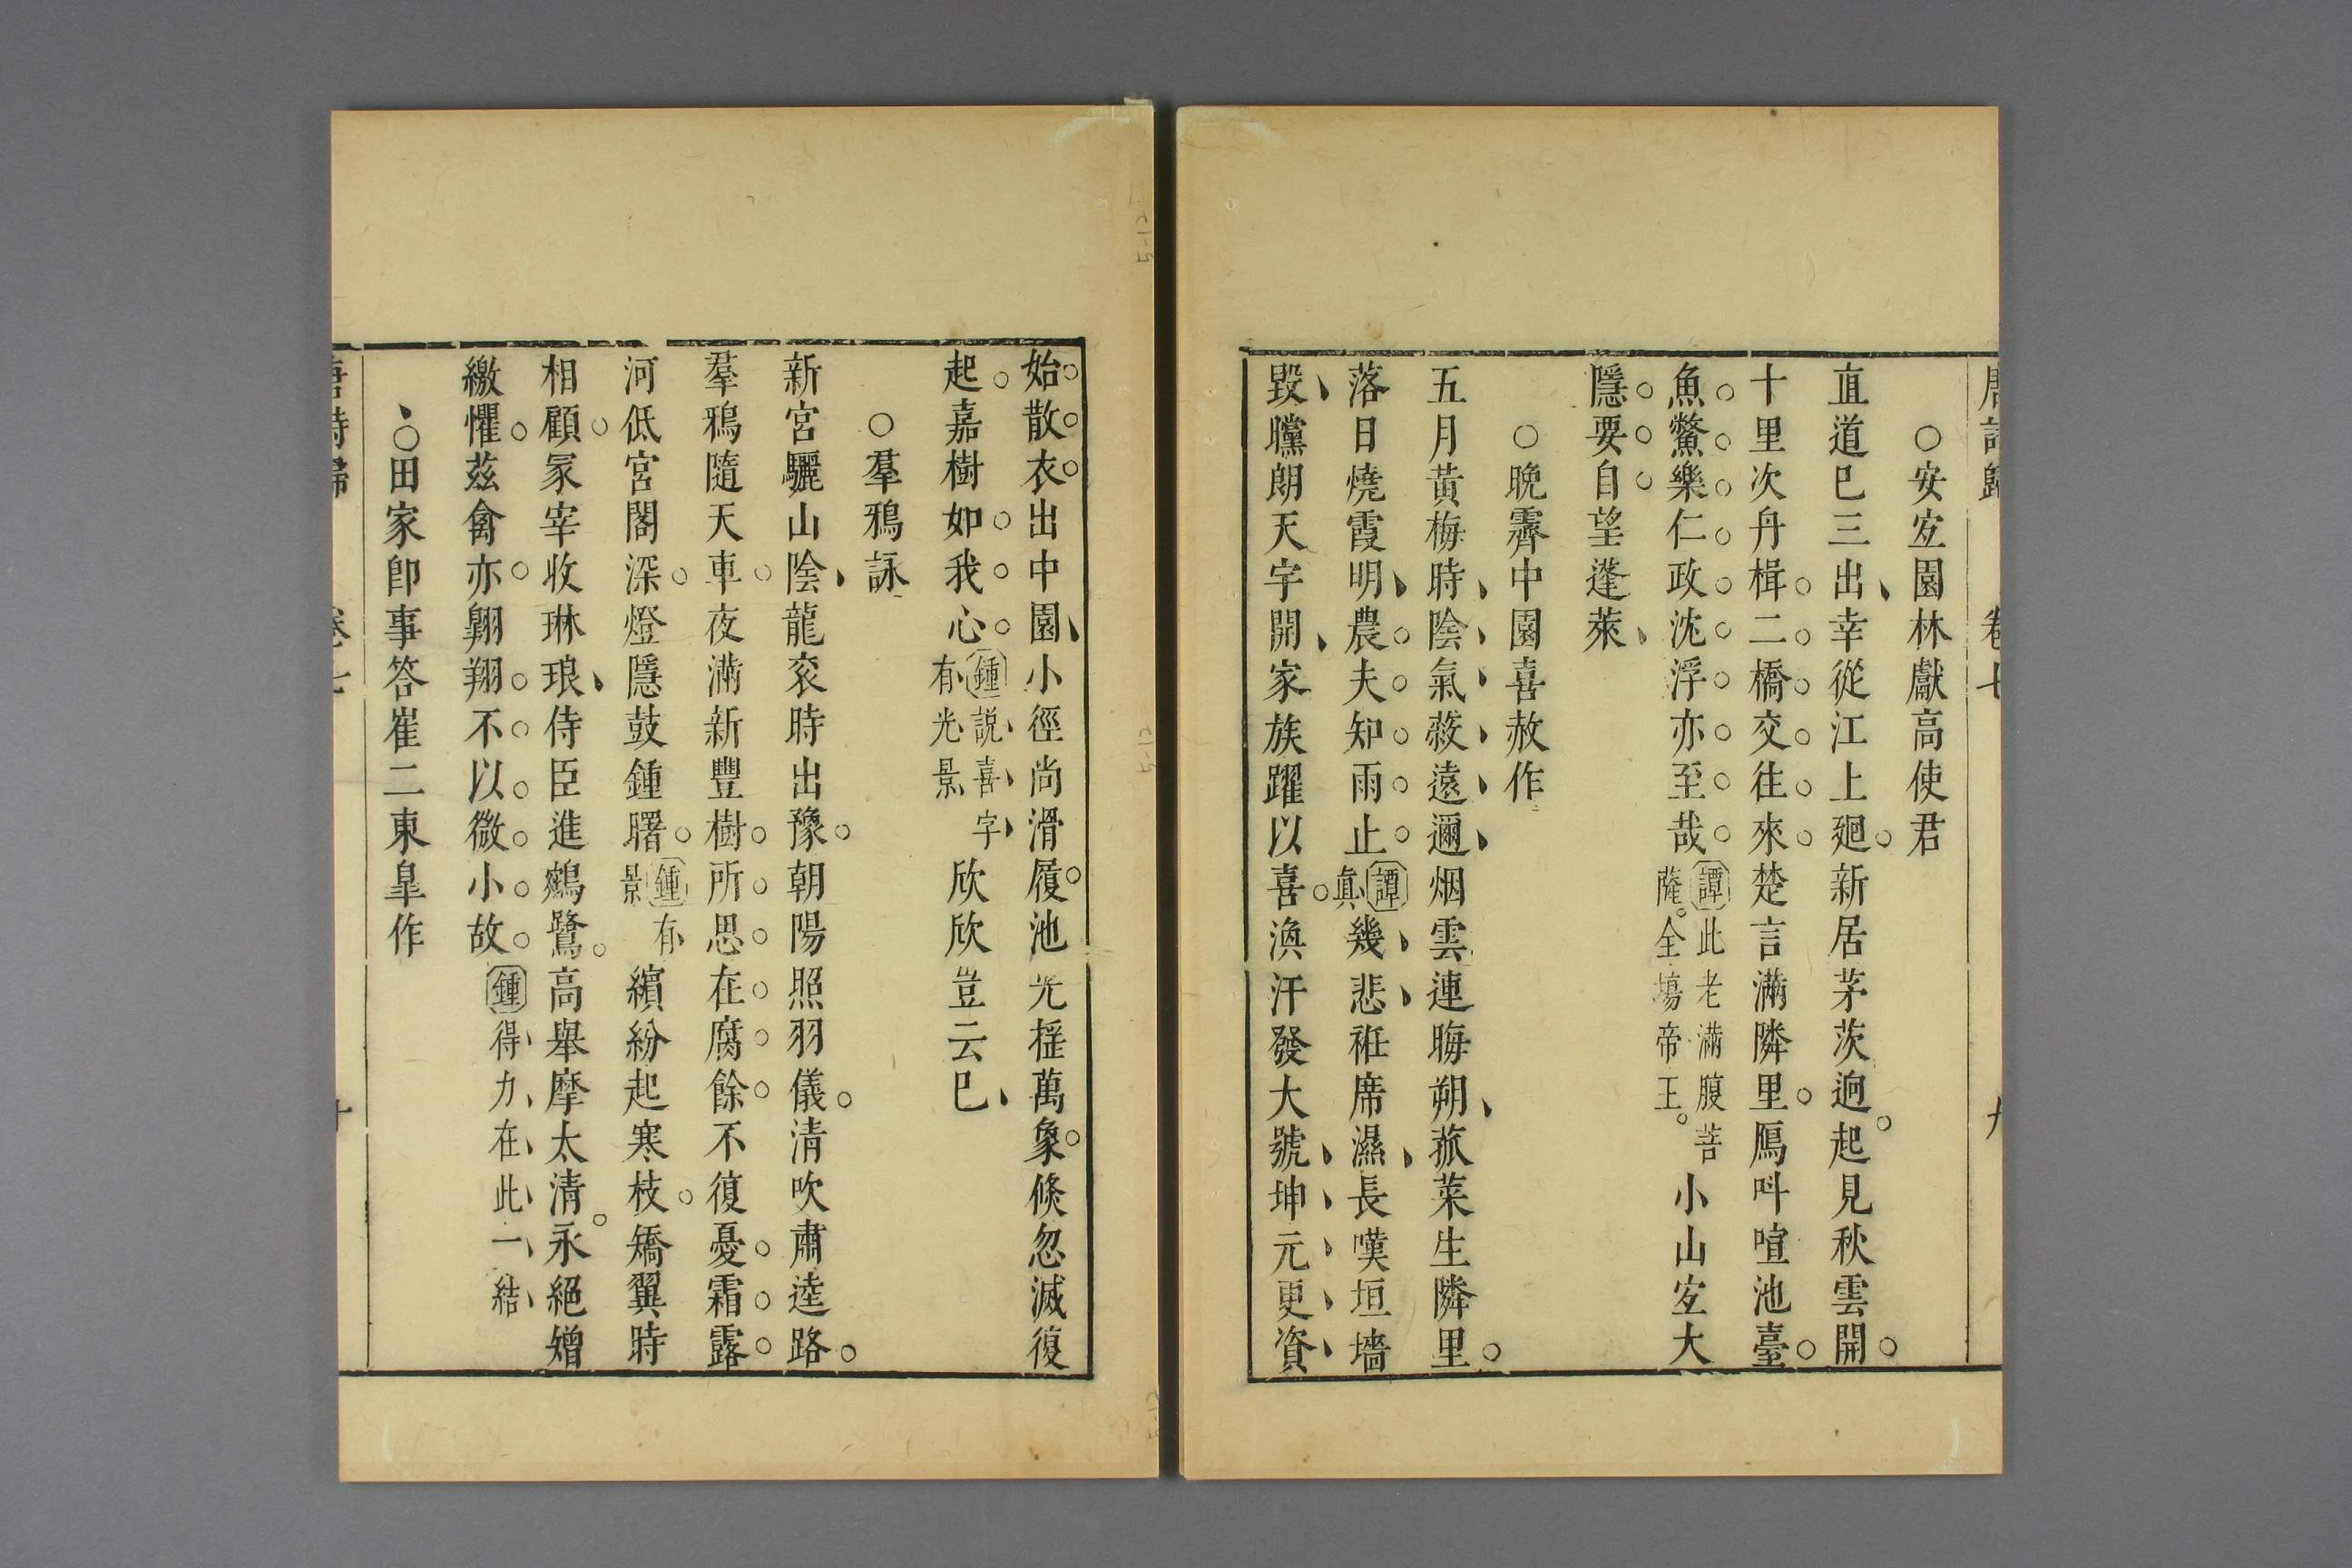 唐詩歸 卷七 九
○安宜園林獻高使君
直道已三出幸從江上廻新居茅茨迥起見秋雲開
十里次丹楫二橋交往來楚言滿隣里鴈呌喧池臺
魚鱉樂仁政沈浮亦至哉譚此老滿腹菩薩全塲帝王小山宜大
隱要自望蓬萊
○晚霽中園喜赦作
五月黃梅時陰氣蔽遠邇烟雲連晦朔菰菜生隣里
落日燒霞明農夫知雨止譚真幾悲袵席濕長嘆垣墻
毀曭朗天宇開家族躍以喜渙汗發大號坤元更資
始散衣出中園小徑尚滑履池光揺萬象倐忽滅復
起嘉樹如我心鍾説喜字有光景欣欣豈云已
○羣鴉詠
新宮驪山陰龍衮時出豫朝陽照羽儀清吹肅逵路
羣鴉隨天車夜滿新豐樹所思在腐餘不復憂霜露
河低宮閣深燈隱鼓鍾曙鍾有景繽紛起寒枝矯翼時
相顧冡宰收琳琅侍臣進鵷鷺高舉摩太清永絕矰
繳懼茲禽亦翺翔不以微小故鍾得力在此一結
○田家卽事答崔二東皐作
唐詩歸 卷七 十